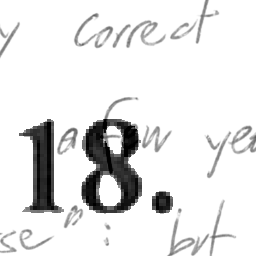 y correct
a few ye
18.
se": but